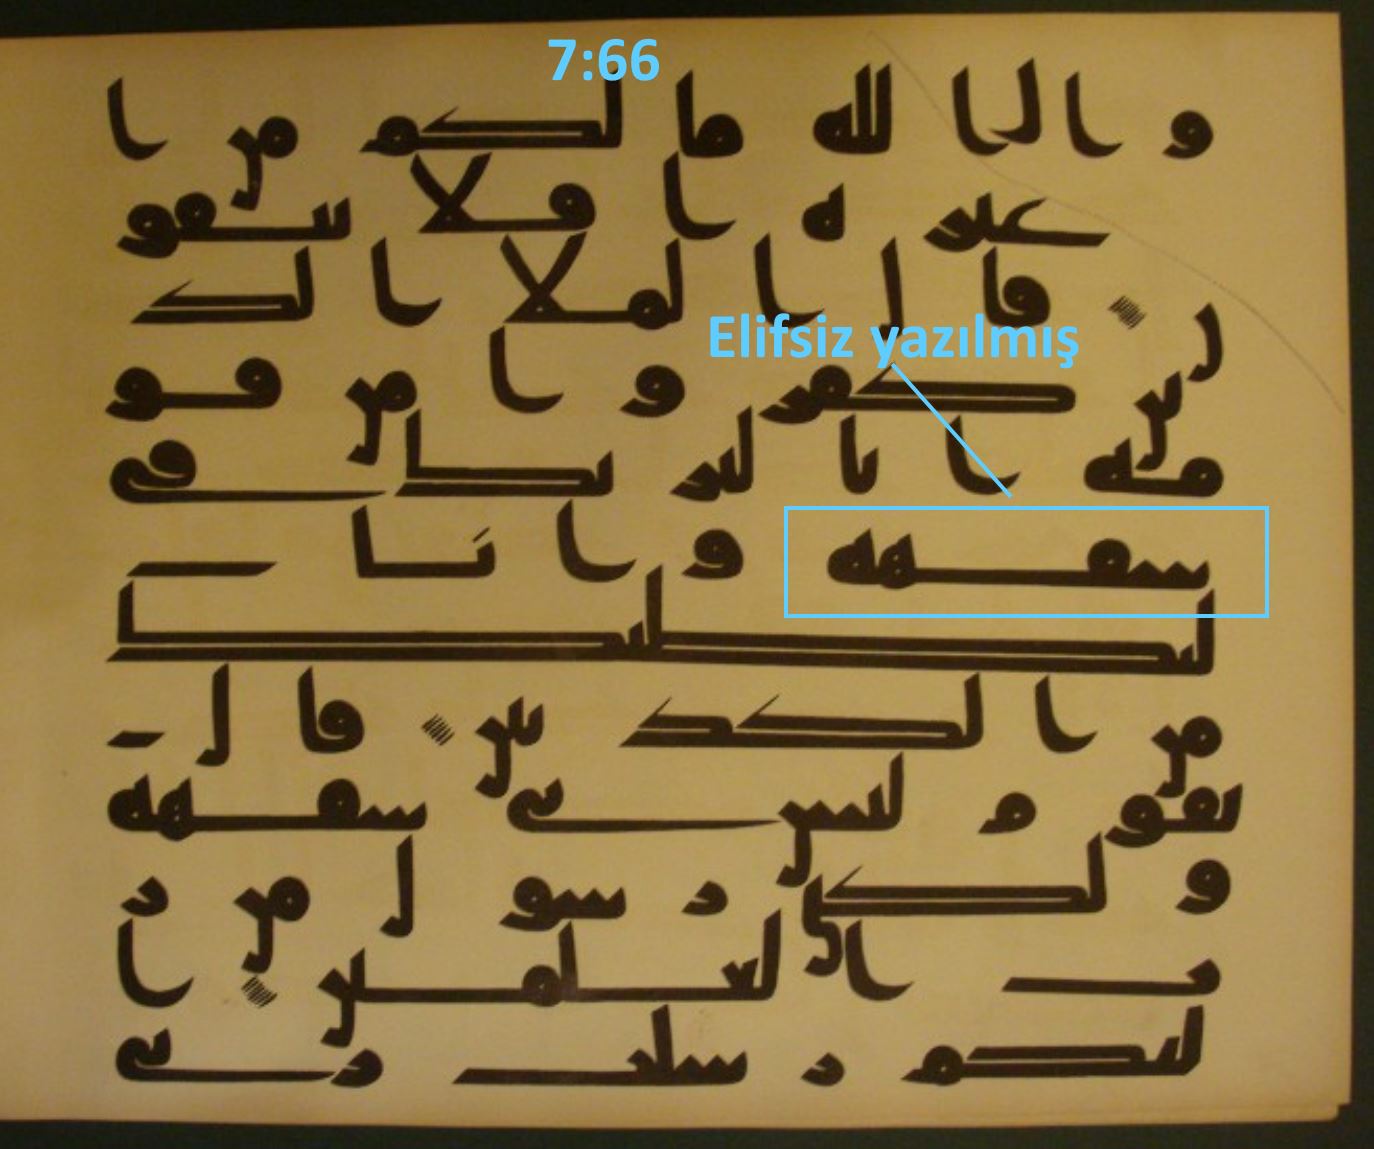 7:66
وا الله ما لكم من ا
غيره افلا تتقو
ن قال الملا الذ
Elifsiz yazılmış
ين كفروا من قو
مه انا لنريك في
سفهه وانا
لنظنك
من الكذبين قال
يقوم ليس بي سفهه
ولكني رسول من ر
ب العلمين ا
بلغكم رسلت ربي